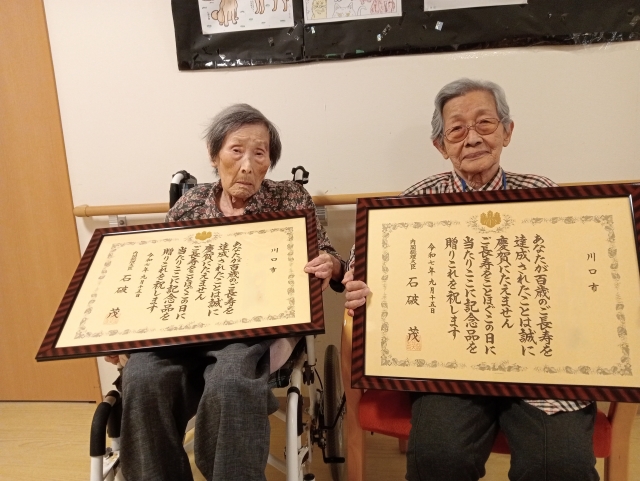 川口市
あなたが百歳のご長寿を
達成されたことは誠に
慶賀にたえません
ご長寿をことほぎこの日に
当たりここに記念品を
贈りこれを祝します
令和七年九月十五日
内閣総理大臣 石破茂
川口市
あなたが百歳のご長寿を
達成されたことは誠に
慶賀にたえません
ご長寿をことほぎこの日に
当たりここに記念品を
贈りこれを祝します
令和七年九月十五日
内閣総理大臣 石破茂